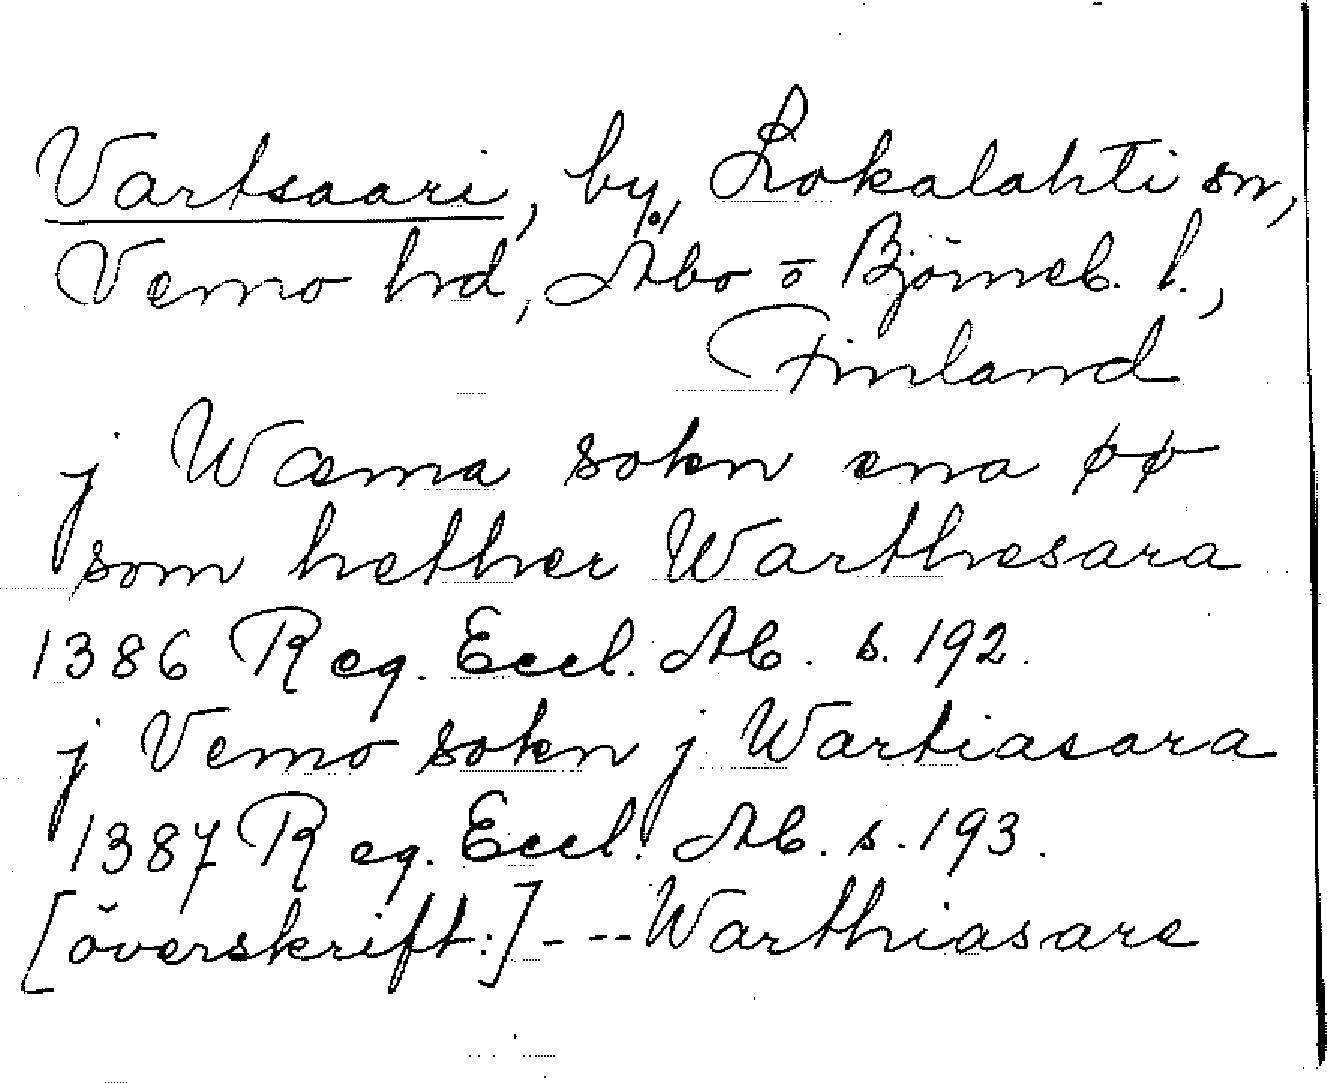 Vartsaari, by, Lokalahti sn,
Vemo hd, Åbo o Björneb. l.,
Finland
j Wæma sokn ena øø
som hether Warthesara
1386 Reg. Eccl. Ab. s. 192.
j Vemo sokn j Wartiasara
1387 Reg. Eccl. Ab. s. 193.
[överskrift:] --- Warthiasare